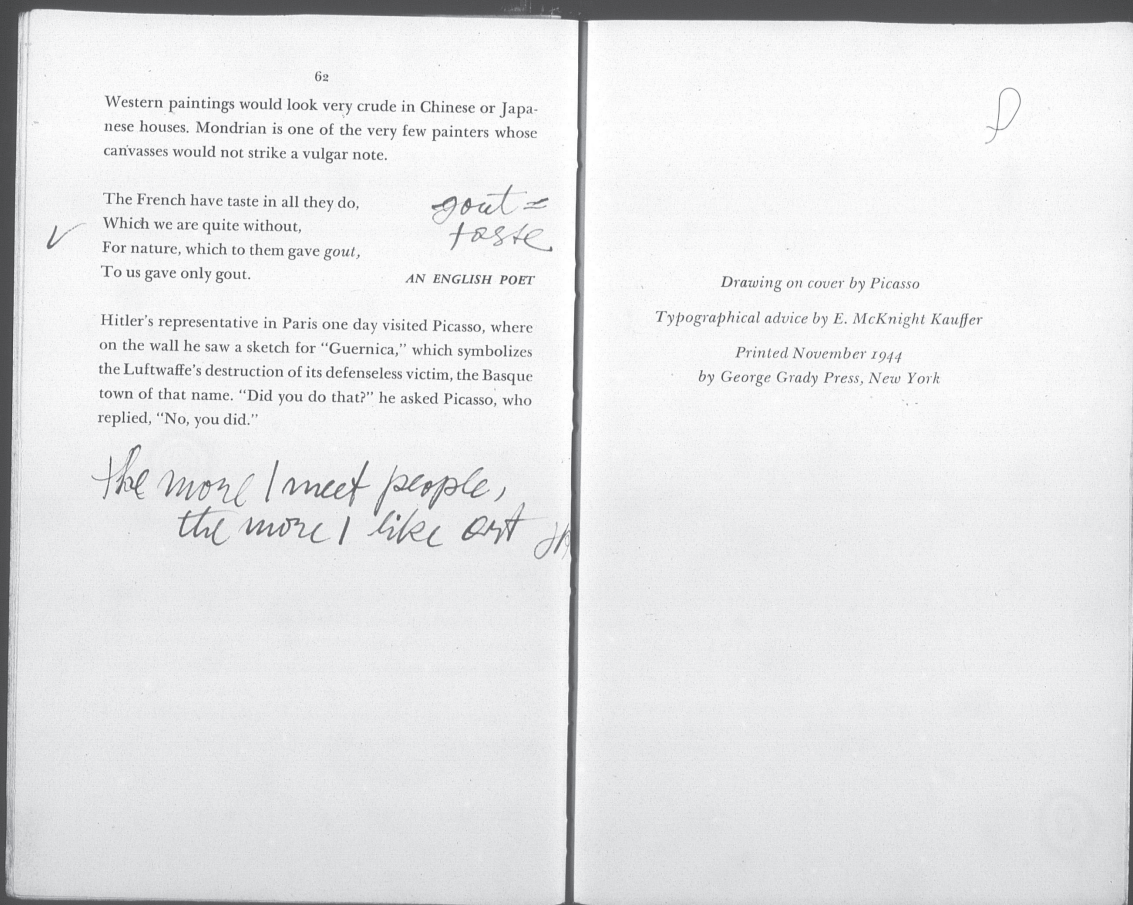 62
Western paintings would look very crude in Chinese or Japa-
nese houses. Mondrian is one of the very few painters whose
canvasses would not strike a vulgar note.
The French have taste in all they do,
Which we are quite without,
For nature, which to them gave gout,
To us gave only gout.
gout =
taste
AN ENGLISH POET
Hitler's representative in Paris one day visited Picasso, where
on the wall he saw a sketch for "Guernica," which symbolizes
the Luftwaffe's destruction of its defenseless victim, the Basque
town of that name. "Did you do that?" he asked Picasso, who
replied, "No, you did."
the more I meet people,
the more I like art
Drawing on cover by Picasso
Typographical advice by E. McKnight Kauffer
Printed November 1944
by George Grady Press, New York